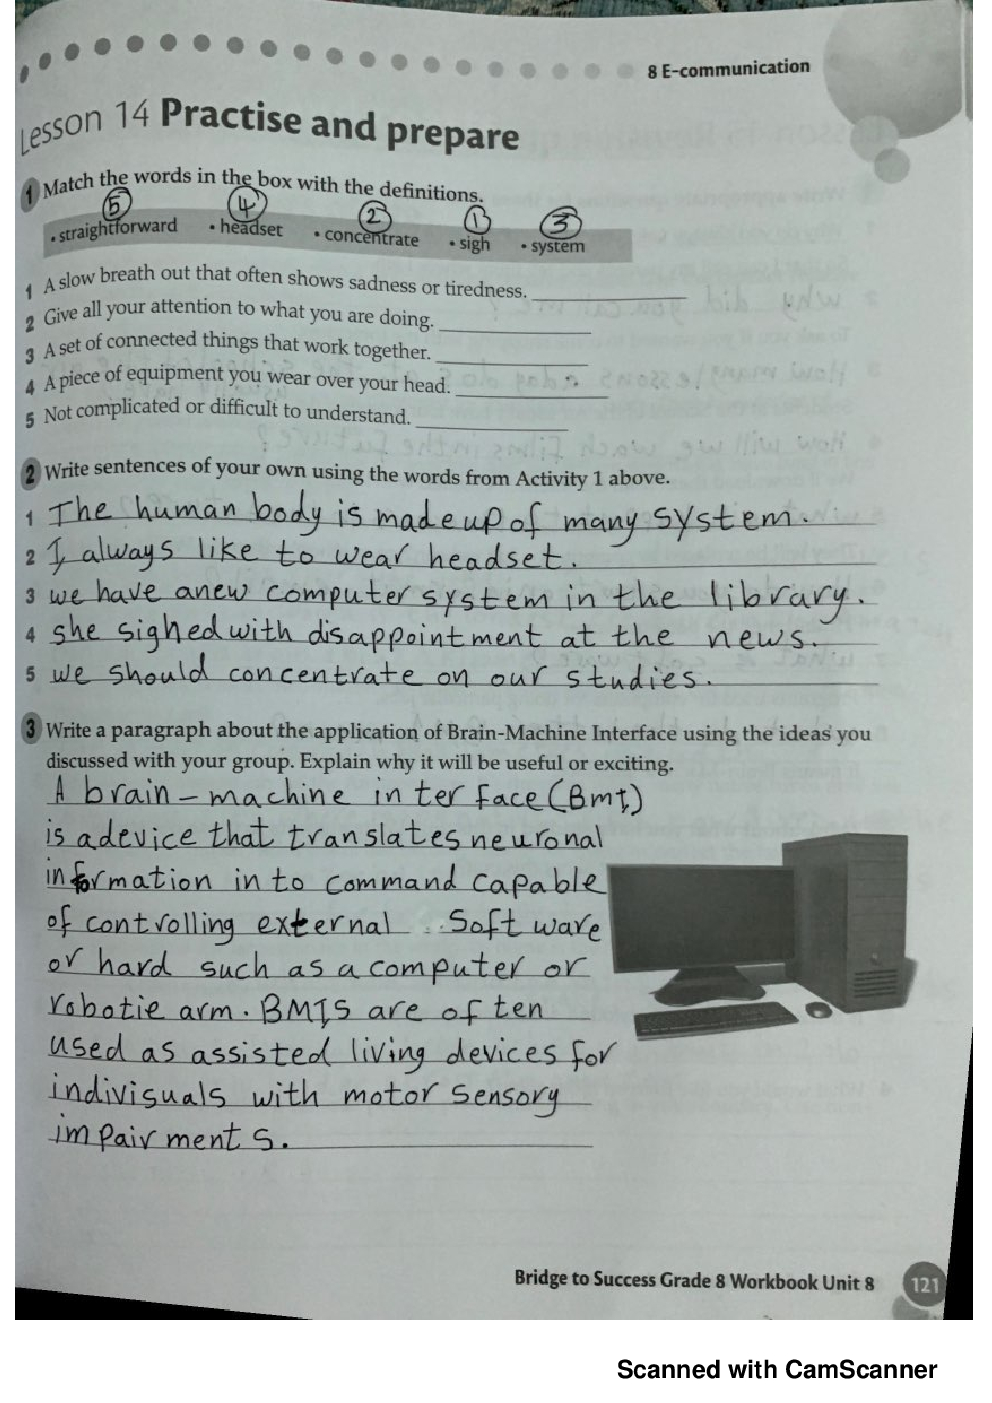 8 E-communication
Lesson 14 Practise and prepare
1 Match the words in the box with the definitions.
5 4 2 1 3
• straightforward • headset • concentrate • sigh • system
1 A slow breath out that often shows sadness or tiredness.
2 Give all your attention to what you are doing.
3 A set of connected things that work together.
4 A piece of equipment you wear over your head.
5 Not complicated or difficult to understand.
2 Write sentences of your own using the words from Activity 1 above.
1 The human body is made up of many system.
2 I always like to wear headset.
3 we have anew computer system in the library.
4 she sighed with disappointment at the news.
5 we should concentrate on our studies.
3 Write a paragraph about the application of Brain-Machine Interface using the ideas you
discussed with your group. Explain why it will be useful or exciting.
A brain - machine in ter face (BmI)
is adevice that translates neuronal
information in to command capable
of controlling external Soft ware
or hard such as a computer or
robotie arm. BMIS are of ten
used as assisted living devices for
indivisuals with motor sensory
impair ment s.
Bridge to Success Grade 8 Workbook Unit 8 121
Scanned with CamScanner